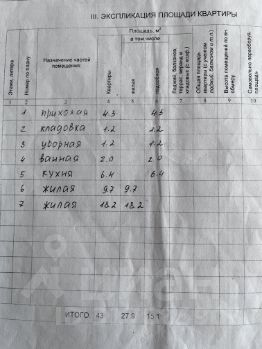 III. ЭКСПЛИКАЦИЯ ПЛОЩАДИ КВАРТИРЫ
Этажи, литера
Номер по плану
Назначение частей помещения
Площадь, м²
в том числе
Квартиры
жилая
подсобная
Лоджий, балконов, террас, веранд и кладовых (с коэф.)
Общая площадь квартиры (с учетом лоджий, балконов и т.п.)
Высота помещений по вн. обмеру
Самовольно переоборуд. площадь
1 2 3 4 5 6 7 8 9 10
1 прихожая 4.3 4.3
2 кладовка 1.2 1.2
3 уборная 1.2 1.2
4 ванная 2.0 2.0
5 кухня 6.4 6.4
6 жилая 9.7 9.7
7 жилая 18.2 18.2
ИТОГО 43 27.9 15.1